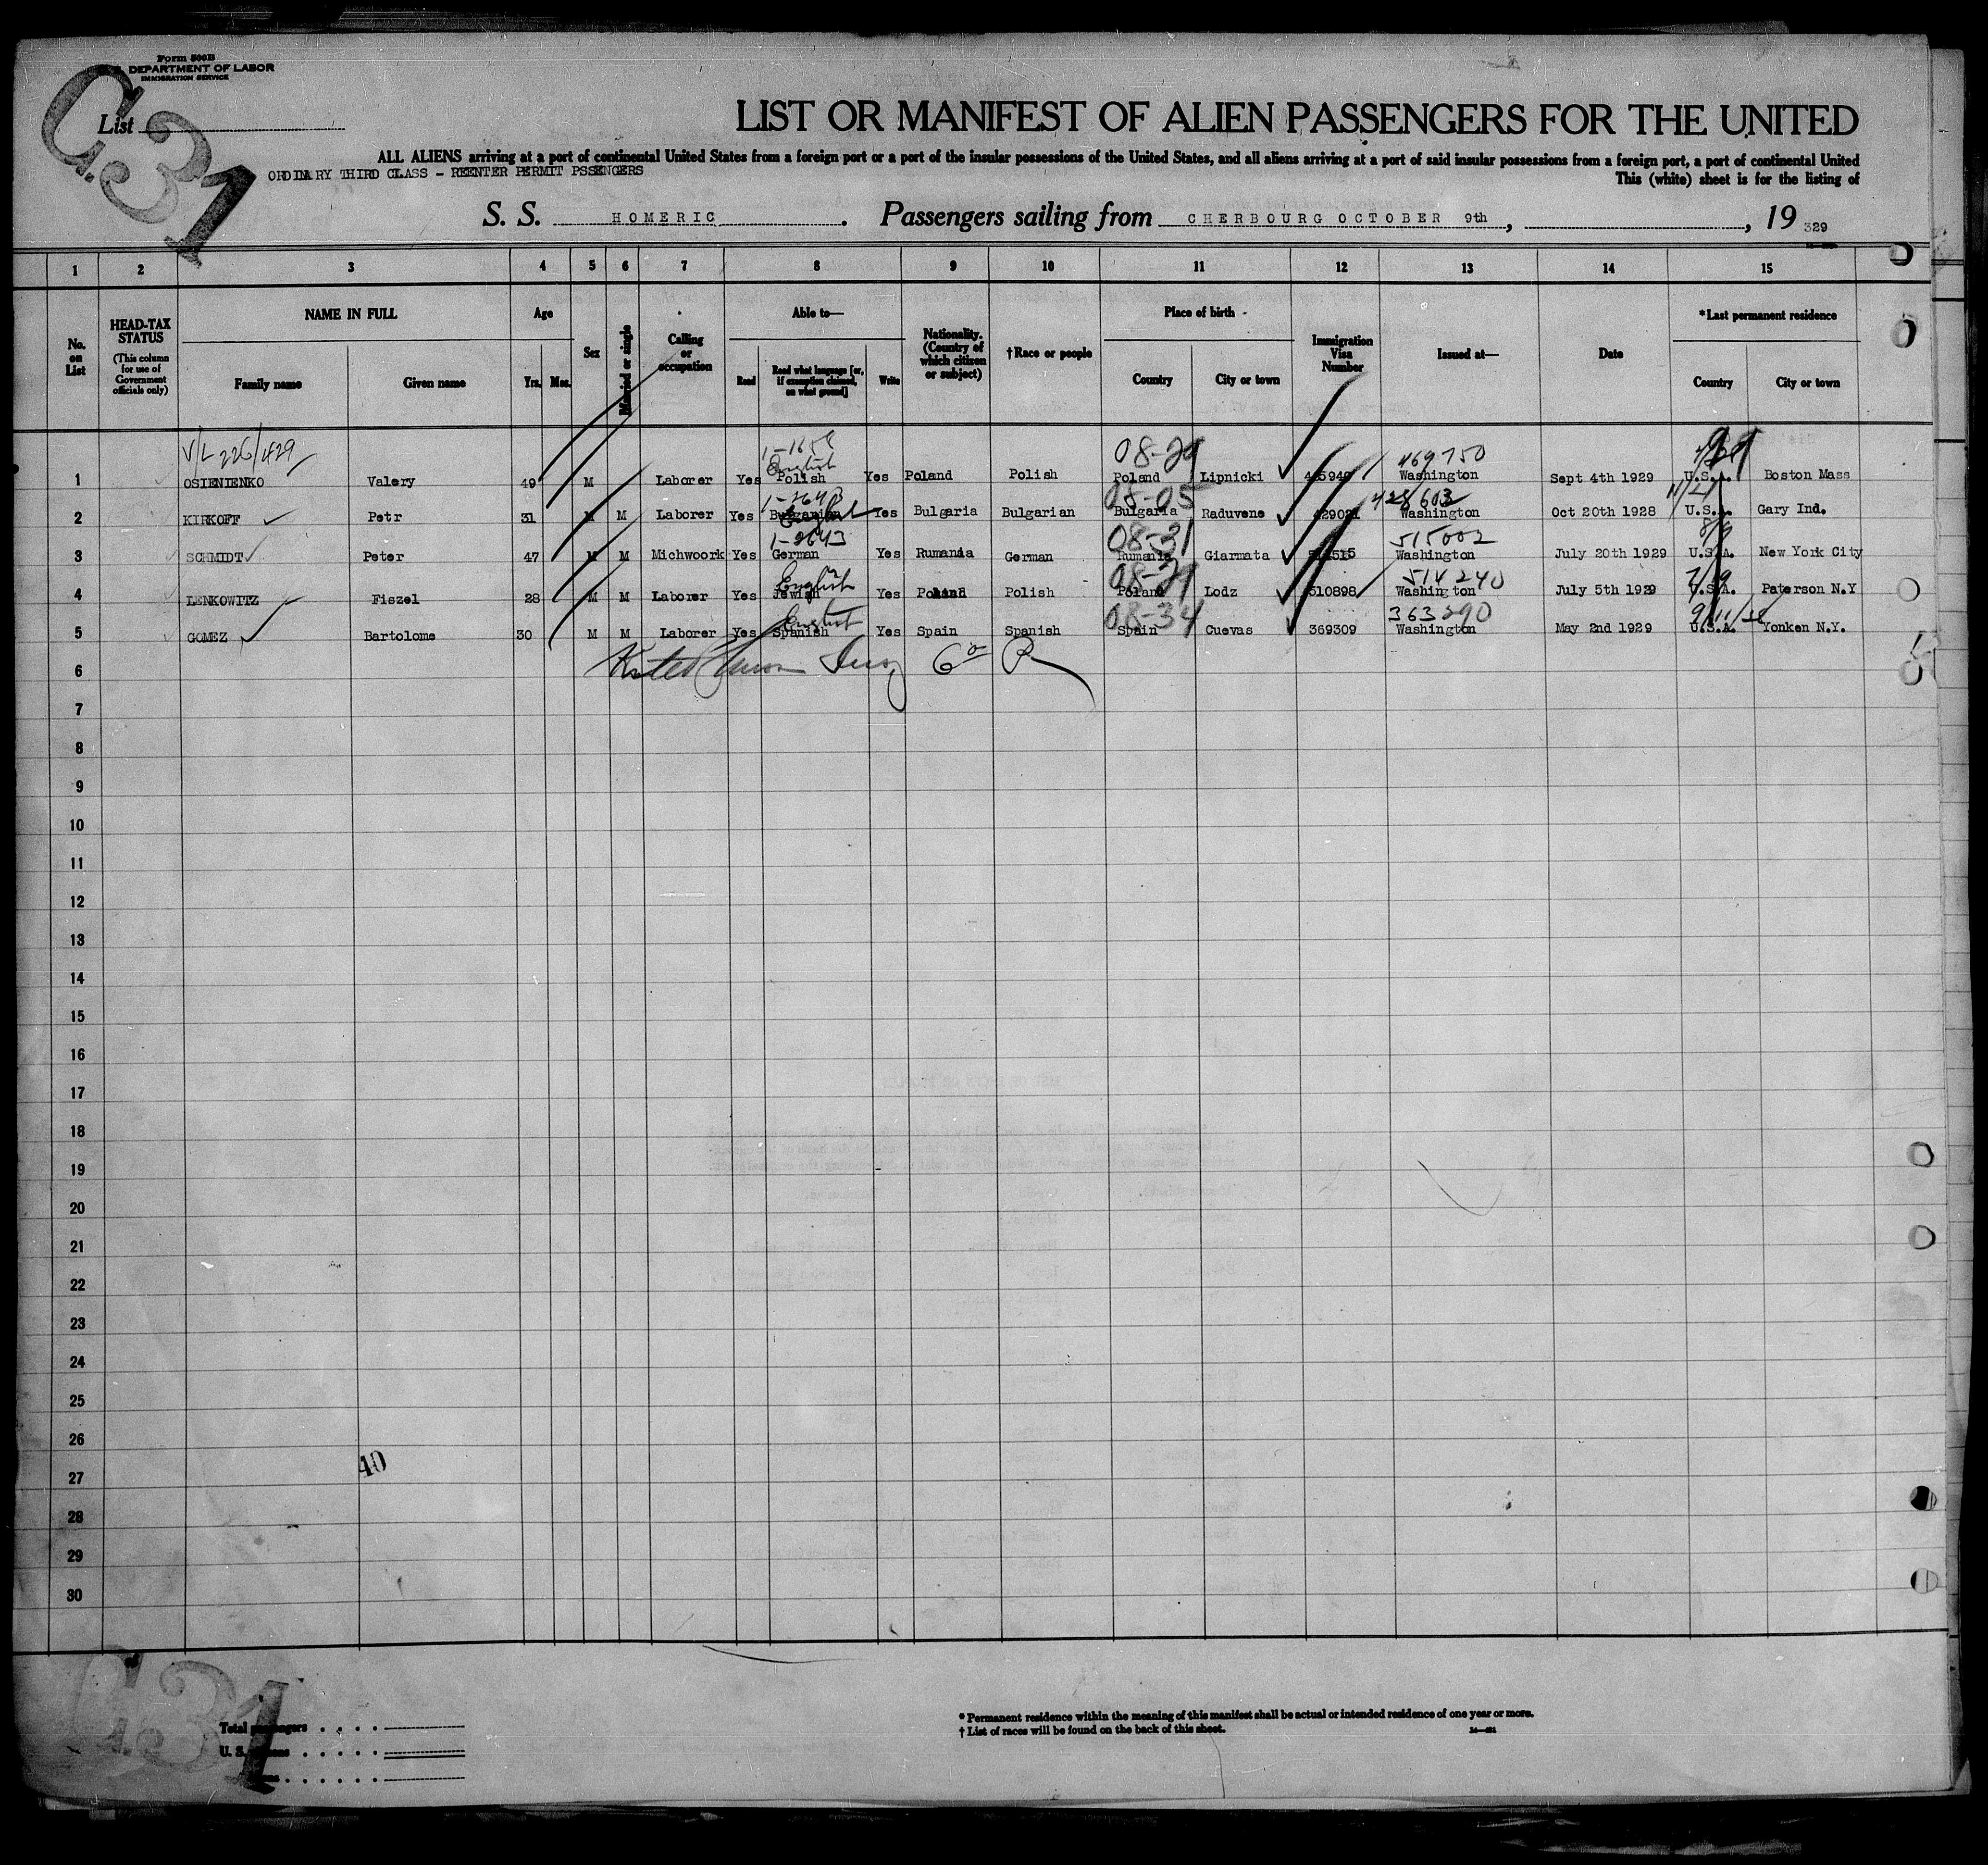 Form 500B
DEPARTMENT OF LABOR
IMMIGRATION SERVICE
C.31
List
LIST OR MANIFEST OF ALIEN PASSENGERS FOR THE UNITED
ALL ALIENS arriving at a port of continental United States from a foreign port or a port of the insular possessions of the United States, and all aliens arriving at a port of said insular possessions from a foreign port, a port of continental United
ORDINARY THIRD CLASS - REENTER PERMIT PSSENGERS
This (white) sheet is for the listing of
S. S. HOMERIC. Passengers sailing from CHERBOURG OCTOBER 9th, , 19 329
1 2 3 4 5 6 7 8 9 10 11 12 13 14 15
No. on List
HEAD-TAX STATUS (This column for use of Government officials only)
NAME IN FULL
Family name Given name
Age
Yrs. Mos.
Sex
Married or single
Calling or occupation
Able to—
Read Read what language [or, if exemption claimed, on what ground] Write
Nationality. (Country of which citizen or subject)
†Race or people
Place of birth
Country City or town
Immigration Visa Number
Issued at—
Date
*Last permanent residence
Country City or town
V/L 226/429 08-29 469750
English
1 OSIENIENKO Valery 49 M Laborer Yes Polish Yes Poland Polish Poland Lipnicki Washington Sept 4th 1929 U.S.A. Boston Mass
1-2643 08-05 428603
2 KIRKOFF Petr 31 M M Laborer Yes Bulgarian English Yes Bulgaria Bulgarian Bulgaria Raduvene 429021 Washington Oct 20th 1928 U.S.A. Gary Ind.
1-2643 08-31 515002 8/9
3 SCHMIDT Peter 47 M M Michwoork Yes German Yes Rumania German Rumania Giarmata Washington July 20th 1929 U.S.A. New York City
English 08-29 514240
4 LENKOWITZ Fiszel 28 M M Laborer Yes Jewish Yes Poland Polish Poland Lodz 510898 Washington July 5th 1929 U.S.A. Paterson N.Y
English 08-34 363290
5 GOMEZ Bartolome 30 M M Laborer Yes Spanish Yes Spain Spanish Spain Cuevas 369309 Washington May 2nd 1929 U.S.A. Yonken N.Y.
6
7
8
9
10
11
12
13
14
15
16
17
18
19
20
21
22
23
24
25
26
27
28
29
30
40
C31
Total passengers
U. S.
* Permanent residence within the meaning of this manifest shall be actual or intended residence of one year or more.
† List of races will be found on the back of this sheet.